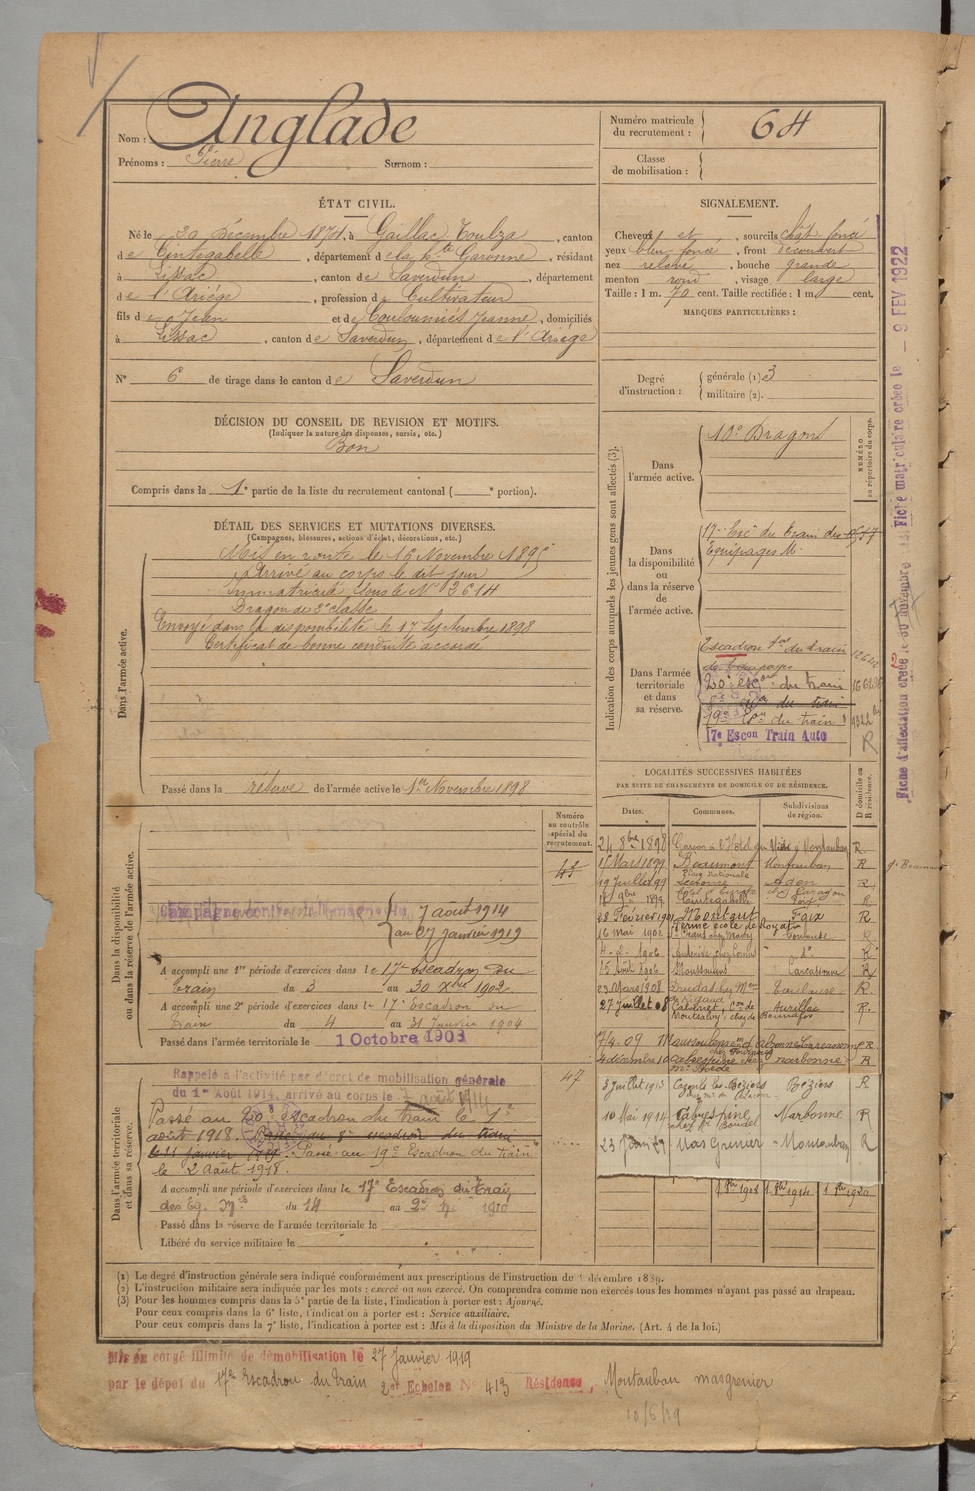 Nom : Anglade
Prénoms : Pierre Surnom :
Numéro matricule du recrutement : 64
Classe de mobilisation :
ÉTAT CIVIL.
Né le 30 décembre 1874, à Gaillac Toulza, canton
de Cintegabelle, département de la Hte Garonne, résidant
à Lissac, canton de Saverdun, département
de l'Ariége, profession de Cultivateur
fils de Jean et de Couloumiés Jeanne, domiciliés
à Lissac, canton de Saverdun, département de l'Ariège
N° 6 de tirage dans le canton de Saverdun
SIGNALEMENT.
Cheveux et, sourcils chât. foncé
yeux bleu foncé, front découvert
nez relevé, bouche grande
menton rond, visage large
Taille : 1 m. 70 cent. Taille rectifiée : 1 m. cent.
MARQUES PARTICULIÈRES :
Degré d'instruction : générale (1) 3
militaire (2).
DÉCISION DU CONSEIL DE REVISION ET MOTIFS.
(Indiquer la nature des dispenses, sursis, etc.)
Bon
Compris dans la 1e partie de la liste du recrutement cantonal ( e portion).
DÉTAIL DES SERVICES ET MUTATIONS DIVERSES.
(Campagnes, blessures, actions d'éclat, décorations, etc.)
Dans l'armée active.
Mis en route le 16 Novembre 1895
Arrivé au corps le dit jour
Immatriculé sous le N° 2614
Dragon de 2e classe
Envoyé dans la disponibilité le 17 Septembre 1898
Certificat de bonne conduite accordé
Passé dans la réserve de l'armée active le 1er Novembre 1898
Indication des corps auxquels les jeunes gens sont affectés (3).
NUMÉRO au répertoire du corps.
Dans l'armée active.
10e Dragons
Dans la disponibilité ou dans la réserve de l'armée active.
17e Esc. du train des
Equipages Mre
Dans l'armée territoriale et dans sa réserve.
Escadron ter du train
des Equipages
20e esc on du train
19e Esn du train
17e Escon Train Auto
R
Fiche matriculaire créée le - 9 FEV 1922
Fiche d'affectation créée le 30 Novembre
LOCALITÉS SUCCESSIVES HABITÉES
PAR SUITE DE CHANGEMENTS DE DOMICILE OU DE RÉSIDENCE.
Dates. Communes. Subdivisions de région. D domicile ou R résidence.
24 8bre 1898 Garçon à l'Hôtel du Midi à Montauban R
15 Mars 1899 Beaumont Montauban R
19 Juillet 99 Aden R
1899 Cintegabelle Foix R
28 Février 1901 Montaut Foix R
16 mai 1902 Ferme école de Royat Toulouse R
4-2-1906 R
15 Août 1906 Carcassonne R
23 Mars 1908 Toulouse R
27 Juillet 08 Cabrinet, Cne de Montsalvy, chez de Bonnafos Aurillac R.
7/4-09 R
4 décembre Narbonne R
3 Juillet 1913 Béziers R
10 Mai 1914 Cabrespine Narbonne R
chez Mr Boudet
23 Juin 29 Mas Grenier - Montauban R
Numéro au contrôle spécial du recrutement.
Dans la disponibilité ou dans la réserve de l'armée active.
Campagne contre l'Allemagne du 7 août 1914
au 27 Janvier 1919
A accompli une 1re période d'exercices dans le 17e escadron du
train du 3 au 30 Xbre 1902
A accompli une 2e période d'exercices dans le 17e Escadron du
Train du 4 au 31 Janvier 1904
Passé dans l'armée territoriale le 1 Octobre 1908
47
Dans l'armée territoriale et dans sa réserve.
Rappelé à l'activité par décret de mobilisation générale
du 1er Août 1914, arrivé au corps le 7 août 1914
Passé au 20e escadron du train le 1er
août 1918. Passé au 8e escadron du train
le 11 janvier 1919. Passé au 19e Escadron du train
le 2 Août 1918.
A accompli une période d'exercices dans le 17e Escadron du Train
des Eq. Mres du 14 au 22 1910
Passé dans la réserve de l'armée territoriale le
Libéré du service militaire le
(1) Le degré d'instruction générale sera indiqué conformément aux prescriptions de l'instruction du 4 décembre 1889.
(2) L'instruction militaire sera indiquée par les mots : exercé ou non exercé. On comprendra comme non exercés tous les hommes n'ayant pas passé au drapeau.
(3) Pour les hommes compris dans la 5e partie de la liste, l'indication à porter est : Ajourné.
Pour ceux compris dans la 6e liste, l'indication à porter est : Service auxiliaire.
Pour ceux compris dans la 7e liste, l'indication à porter est : Mis à la disposition du Ministre de la Marine. (Art. 4 de la loi.)
Mis en congé illimité de démobilisation le 27 Janvier 1919
par le dépôt du 17e Escadron du train 2e Echelon N° 413 Résidence, Montauban masgrenier
10/6/19